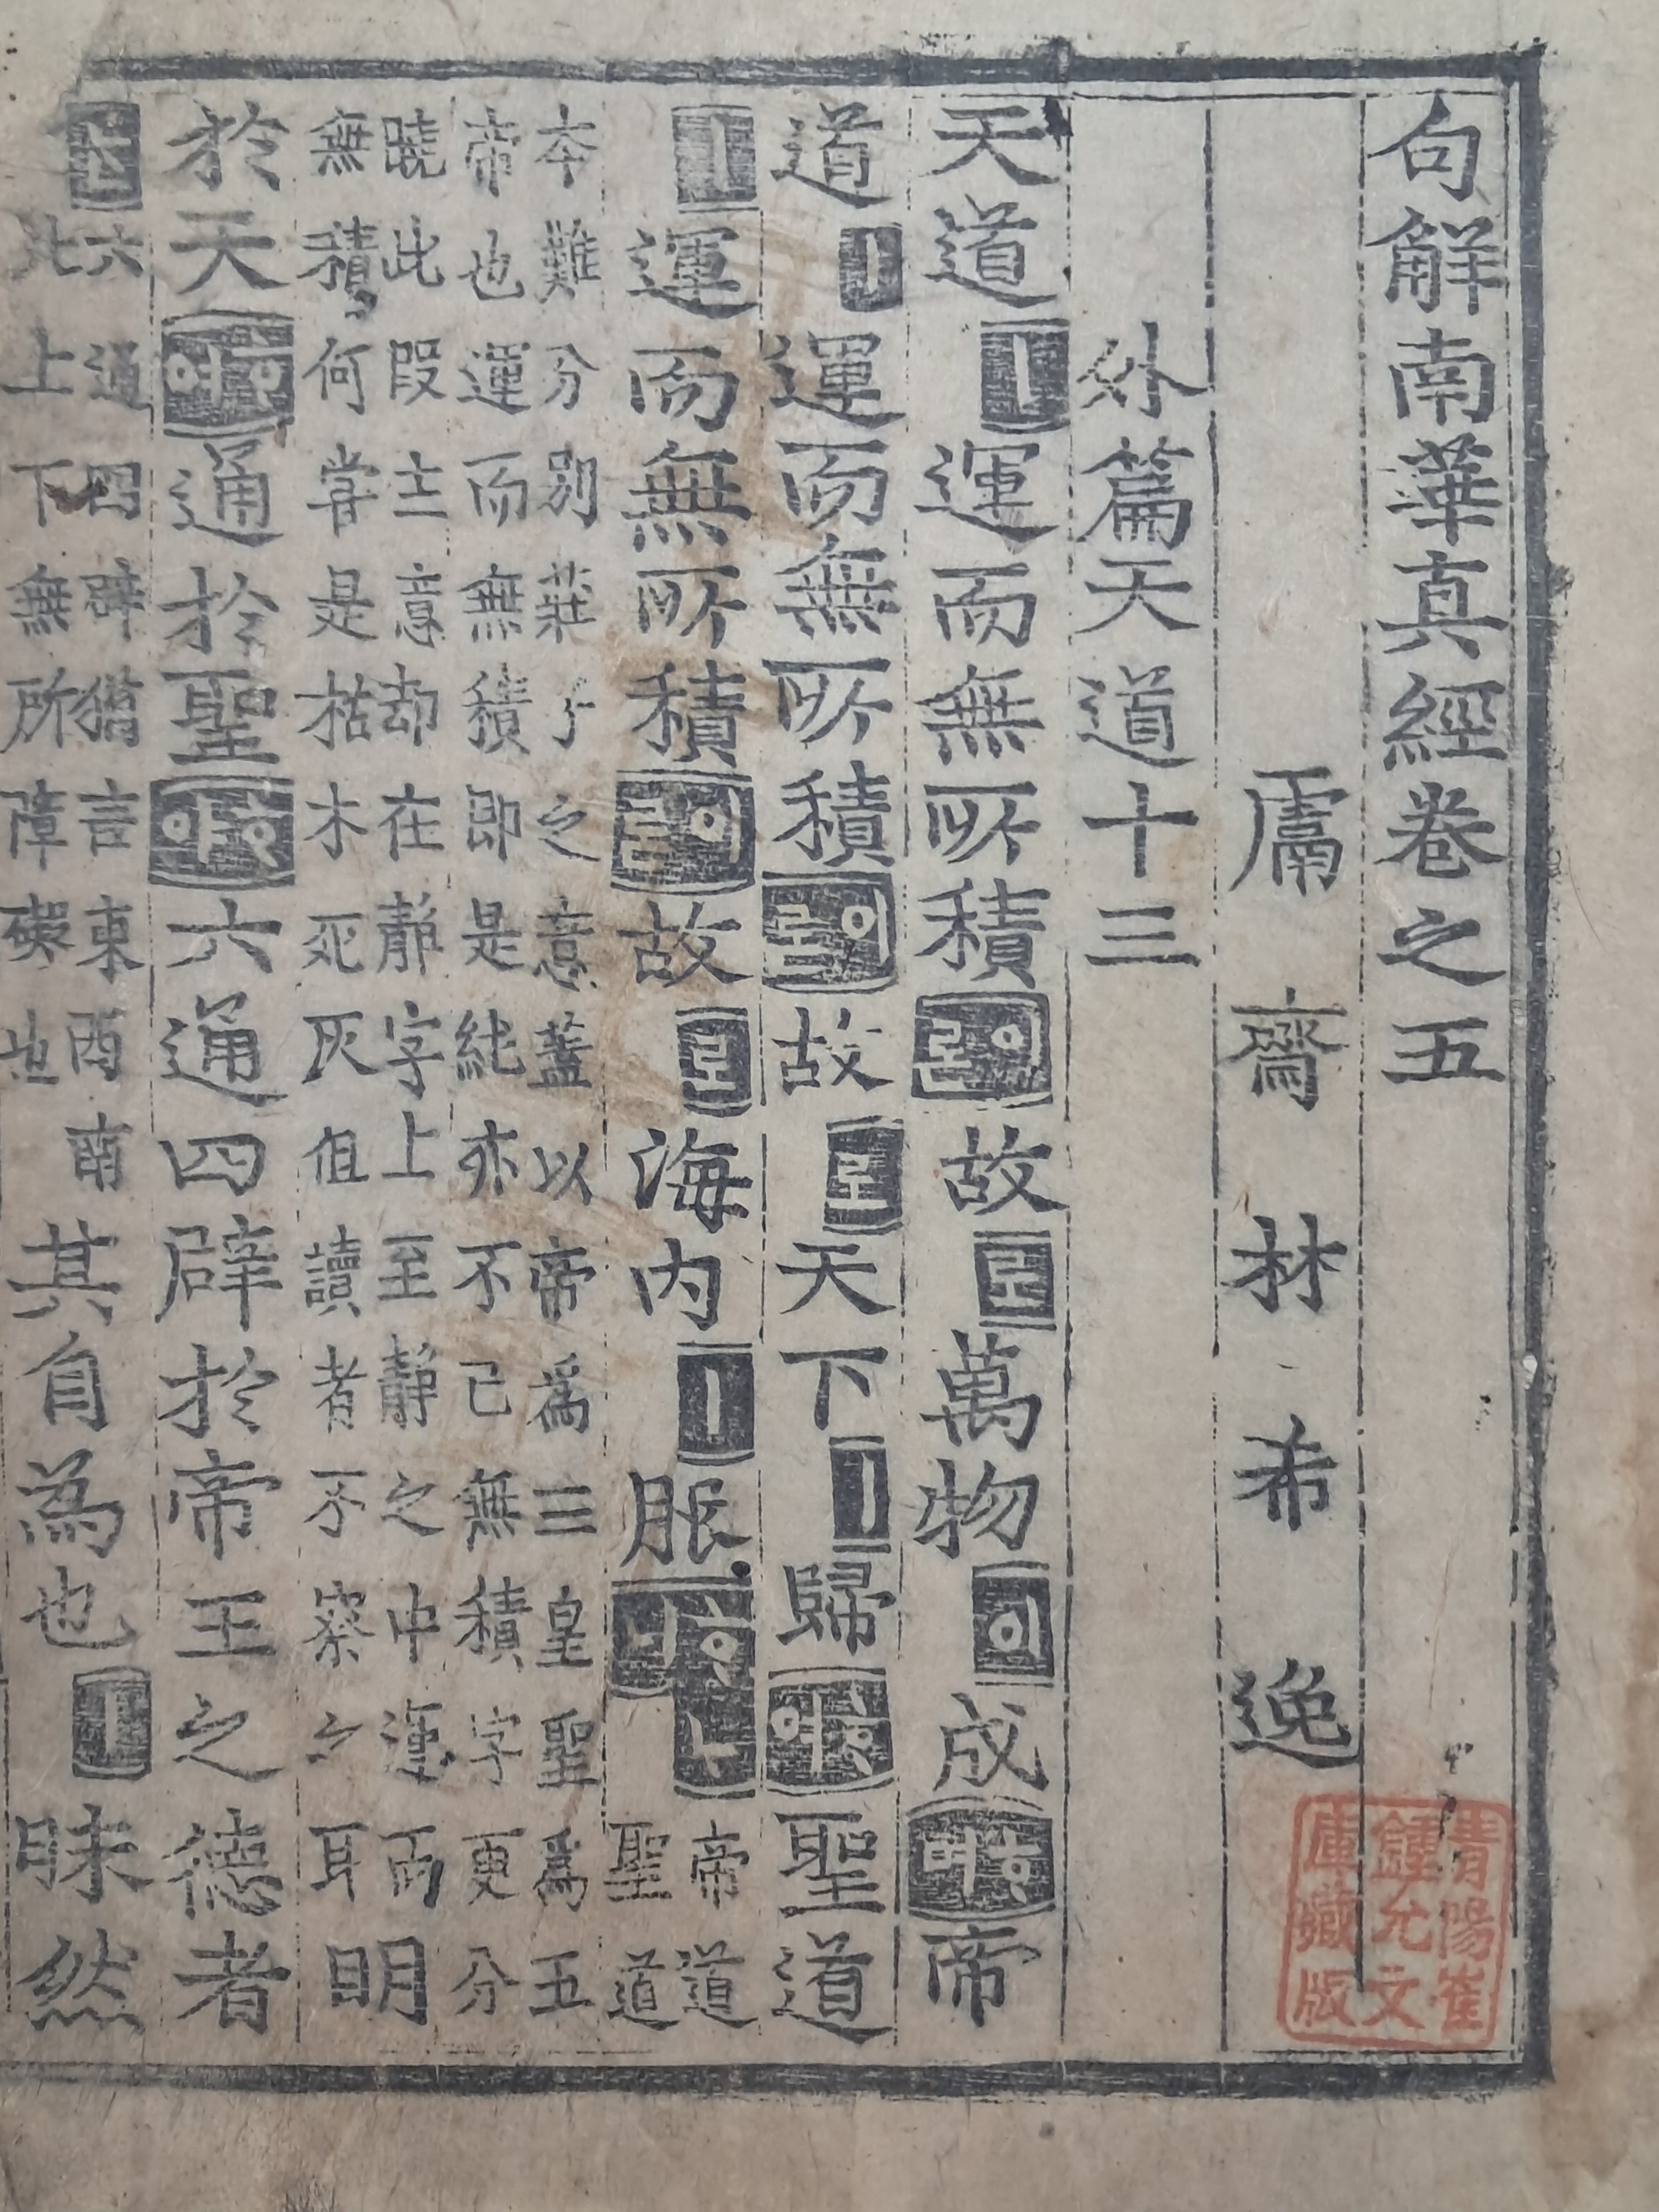 句解南華真經卷之五
鬳齋林希逸
外篇天道十三
天道ㅣ運而無所積故로萬物이成帝
道ㅣ運而無所積故로天下ㅣ歸聖道
ㅣ運而無所積故로海内ㅣ服帝道聖道
本難分別莊子之意蓋以帝爲三皇聖爲五
帝也運而無積即是純亦不已無積字更分
曉此段主意却在靜字上至靜之中運而
無積何嘗是枯木死灰但讀者不察之耳明
於天通於聖六通四辟於帝王之德者
六通四辟猶言東西南
北上下無所障礙也其自為也ㅣ昧然
青陽崔
鍾允文
庫藏版